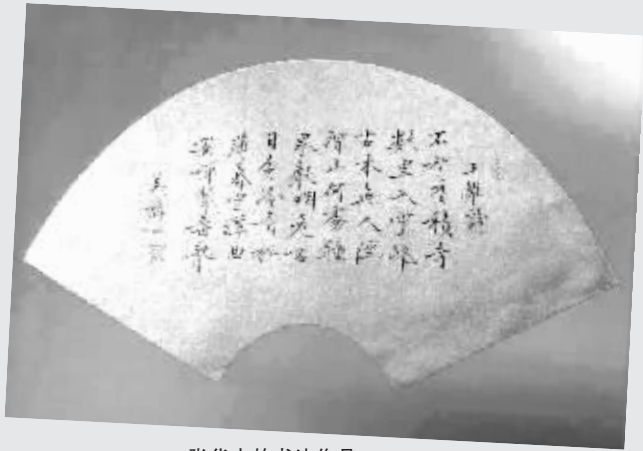 王維詩
不知香積寺
數里入雲峰
古木無人徑
深山何處鐘
泉聲咽危石
日色冷青松
薄暮空潭曲
安禪制毒龍